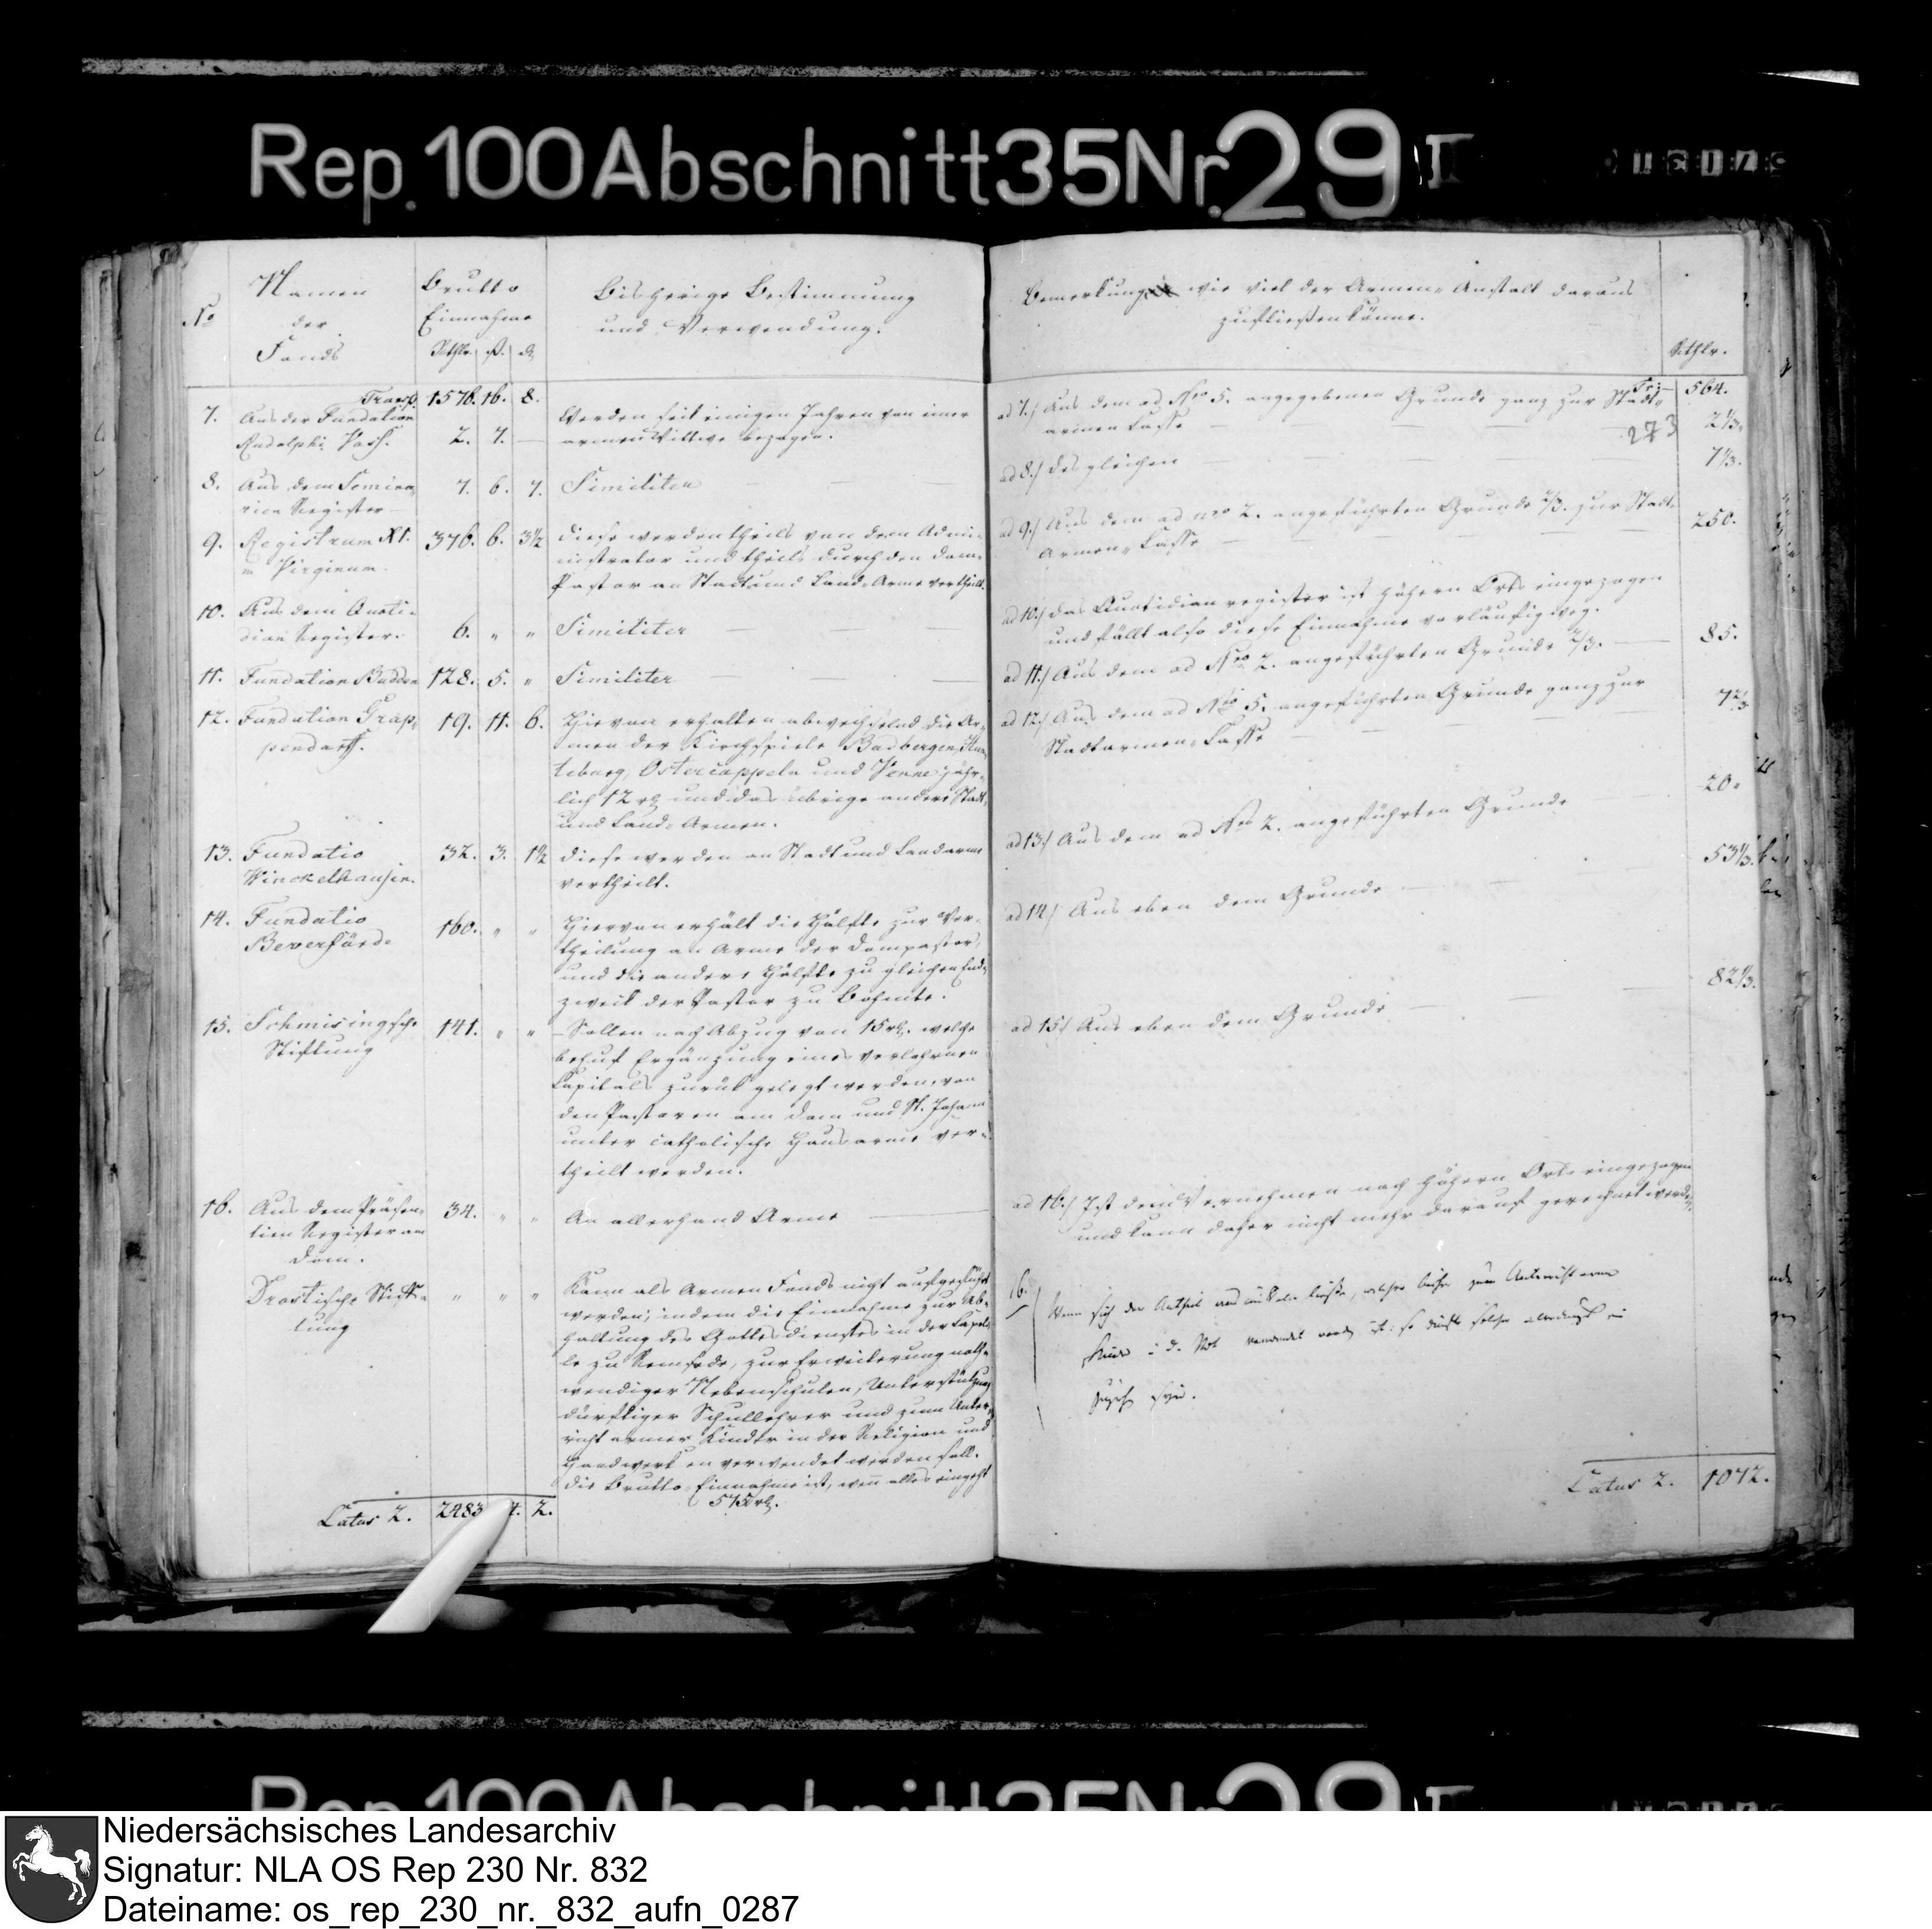 Rep. 100 Abschnitt 35 Nr. 29 I
No
Namen
der
Fonds
Brutto
Einnahme
Rthlr. ß. d
Bisherige Bestimmung
und Verwendung.
Transp. 1576. 16. 8.
7. Aus der Fundation
Rudolphi Voss. 2. 7. —
Werden seit einigen Jahren von einer
armen Wittwe bezogen.
8. Aus dem Semina-
rien Register 7. 6. 7. Similiter
9. Registrum XI.
m Virginum. 376. 6. 3½
Diese werden theils von dem Admi-
nistrator und theils durch den Dom-
Pastor an Stadt und Land-Arme vertheilt.
10. Aus dem Quoti-
dian Register. 6. " " Similiter
11. Fundation Budden 128. 5. " Similiter
12. Fundation Grap-
pendorff. 19. 11. 6.
Hievon erhalten abwechselnd die Ar-
men der Kirchspiele Badbergen, Hun-
teburg, Ostercappeln und Venne jähr-
lich 12 rh und das übrige andere Stadt-
und Land-Armen.
13. Fundatio
Winckelhausen. 32. 3. 1½
diese werden an Stadt und Landarme
vertheilt.
14. Fundatio
Beverförde 160. " "
Hiervon erhält die Hälfte zur Ver-
theilung an Arme der Dompastor,
und die andere Hälfte zu gleichen End-
zweck der Pastor zu Bohmte.
15. Schmisingsche
Stiftung 141. " "
Sollen nach Abzug von 15 rh. welche
behuf Ergänzung eines verlohrnen
Kapitals zurük gelegt werden, von
den Pastoren am Dom und St. Johann
unter catholische Hausarme ver-
theilt werden.
16. Aus dem Präsen-
tien Register am
Dom. 34. " " An allerhand Arme
Drostische Stif-
tung " " "
Kann als Armen Fonds nicht aufgeführt
werden; indem die Einnahme zur Ab-
haltung des Gottesdienstes in der Capel-
le zu Remsede, zur Erweiterung noth-
wendiger Nebenschulen, Unterstützung
dürftiger Schullehrer und zum Unter-
richt armer Kinder in der Religion und
Handwerken verwendet werden soll.
die Brutto Einnahme ist, wen alles eingeht
575 rh.
Latus 2. 2483 4. 2.
Bemerkung wie viel der Armen-Anstalt daraus
zufließen könne.
Rthlr.
564.
ad 7./ Aus dem ad Nro 5. angegebenen Grunde ganz zur Stadt-
armen Casse 2⅓.
273
ad 8./ desgleichen 7⅓.
ad 9./ Aus dem ad nro 2. angeführten Grunde ⅔. zur Stadt-
Armen-Casse 250.
ad 10./ das Quotidianregister ist höhern Orts eingezogen
und fällt also diese Einnahme vorläufig weg.
ad 11./ Aus dem ad Nro 2. angeführten Grunde ⅔. 85.
ad 12./ Aus dem ad Nro 5. angeführten Grunde ganz zur
Stadtarmen-Casse 7⅔
ad 13./ Aus dem ad Nro 2. angeführten Grunde 20.
ad 14./ Aus eben dem Grunde 53⅓.
ad 15./ Aus eben dem Grunde 82⅓.
ad 16./ Ist dem Vernehmen nach höhern Orts eingezogen
und kann daher nicht mehr darauf gerechnet werden.
16. Wenn sich der Antheil
Latus 2. 1072.
Niedersächsisches Landesarchiv
Signatur: NLA OS Rep 230 Nr. 832
Dateiname: os_rep_230_nr._832_aufn_0287